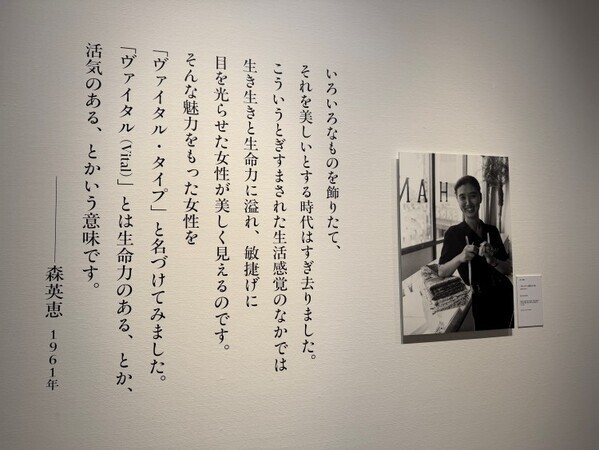 いろいろなものを飾りたて、
それを美しいとする時代はすぎ去りました。
こういうとぎすまされた生活感覚のなかでは
生き生きと生命力に溢れ、敏捷げに
目を光らせた女性が美しく見えるのです。
そんな魅力をもった女性を
「ヴァイタル・タイプ」と名づけてみました。
「ヴァイタル(Vital)」とは生命力のある、とか、
活気のある、とかいう意味です。
森英恵 1961年
HAN